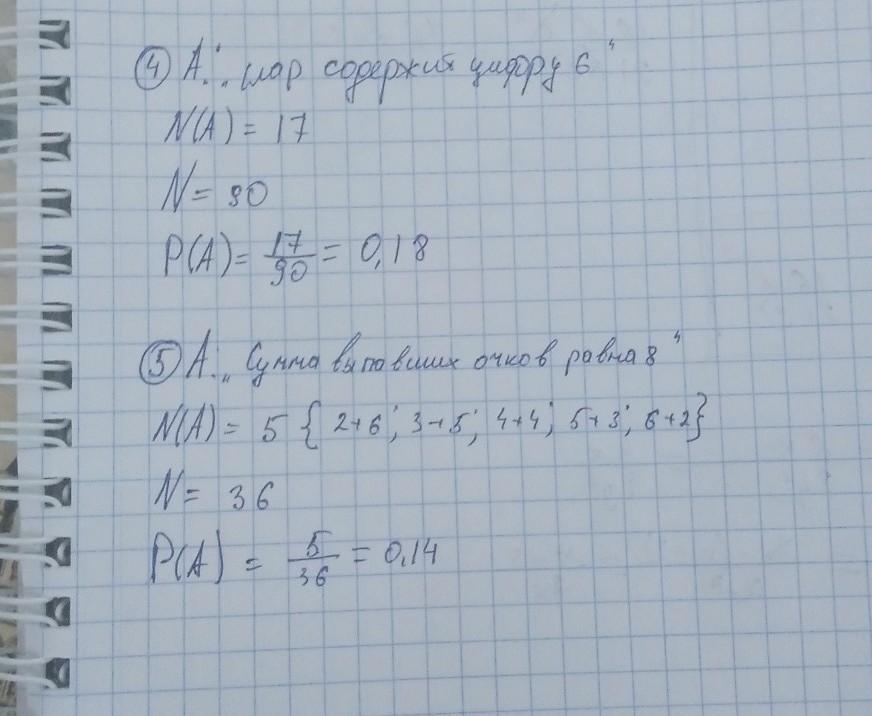 ④ A: „шар содержит цифру 6"
N(A) = 17
N = 90
P(A) = 17/90 = 0,18
⑤ A: „Сумма выпавших очков равна 8"
N(A) = 5 { 2+6; 3+5; 4+4; 5+3; 6+2}
N = 36
P(A) = 5/36 = 0,14